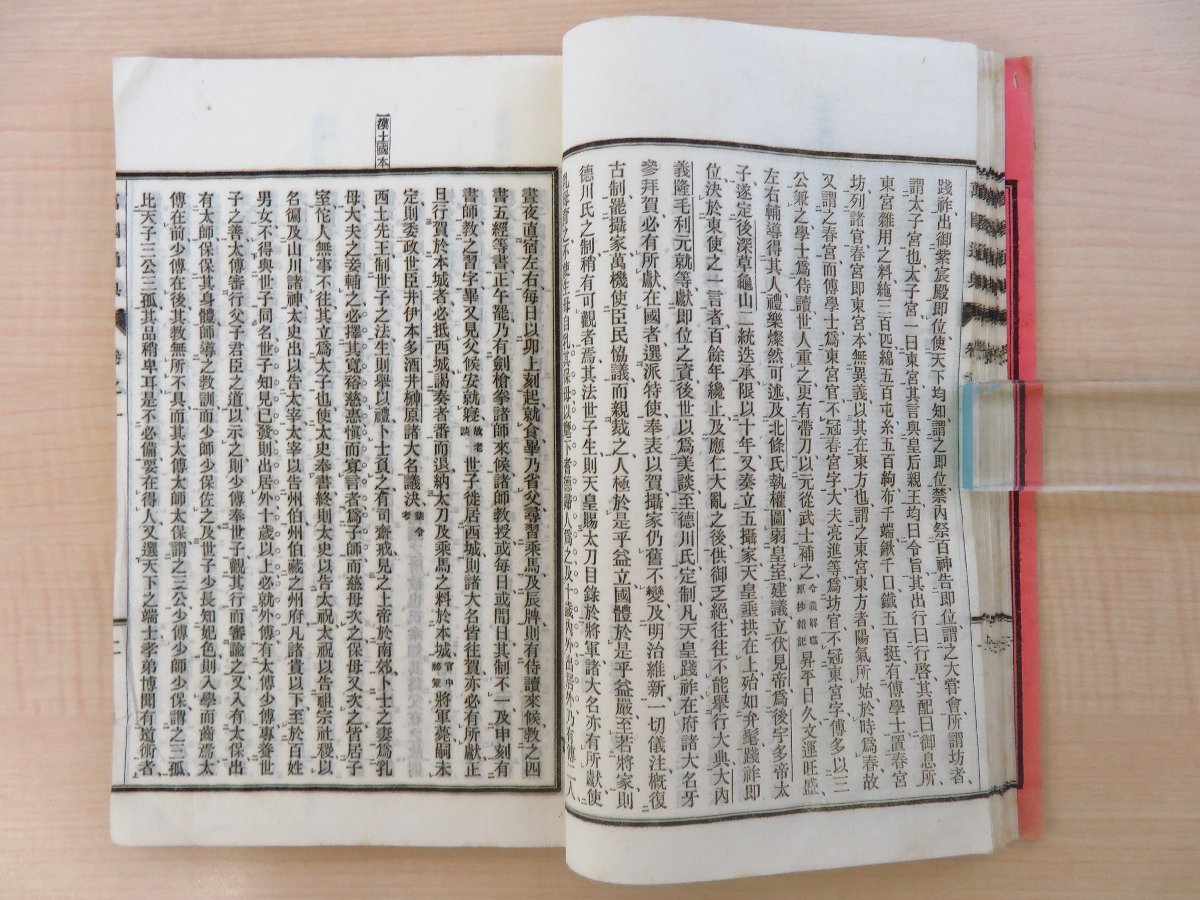 踐祚出御紫宸殿卽位使天下均知謂之卽位禁內祭百神告卽位謂之大嘗會所謂坊者
謂太子宮也太子宮一曰東宮其言與皇后親王均曰令旨其出行曰行啓其配曰御息所
東宮雜用之料絁三百匹綿五百屯糸五百絇布千端鍬千口鐵五百挺有傅學士置春宮
坊列諸官春宮卽東宮本無異義以其在東方也謂之東宮東方者陽氣所始於時爲春故
又謂之春宮而傅學士爲東宮官不冠春宮字大夫亮進等爲坊官不冠東宮字傅多以三
公兼之學士爲侍讀世人重之更有帶刀以元從武士補之 昇平日久文運旺盛
左右輔導得其人禮樂燦然可述及北條氏執權圖弱皇室建議立伏見帝爲後宇多帝太
子遂定後深草龜山二統迭承限以十年又奏立五攝家天皇垂拱在上殆如弁髦踐祚卽
位決於東使之一言者百餘年纔止及應仁大亂之後供御乏絕往往不能舉行大典大內
義隆毛利元就等獻卽位之資後世以爲美談至德川氏定制凡天皇踐祚在府諸大名牙
參拜賀必有所獻在國者選派特使奉表以賀攝家仍舊不變及明治維新一切儀注槪復
古制罷攝家萬機使臣民協議而親裁之人極於是乎益立國體於是乎益嚴至若將家則
德川氏之制稍有可觀者焉其法世子生則天皇賜太刀目錄於將軍諸大名亦有所獻使
漢土國本
晝夜直宿左右每日以卯上刻起就食畢乃省父尋習乘馬及辰牌則有侍讀來候敎之四
書五經等書正午罷乃有劍槍拳諸師來候諸師敎授或每日或間日其制不一及申刻有
書師敎之習字畢又見父候安就寢 世子徙居西城則諸大名皆往賀亦必有所獻正
旦行賀於本城者必抵西城謁奏者番而退納太刀及乘馬之料於本城 將軍薨嗣未
定則委政世臣井伊本多酒井榊原諸大名議決
西土先王制世子之法生則舉以禮卜士負之有司齋戒見之上帝於南郊卜士之妻爲乳
母大夫之妾輔之必擇其寬裕慈惠愼而寡言者爲子師而慈母次之保母又次之皆居子
室佗人無事不往其立爲太子也使太史奉書終則太史以告太祝太祝以告祖宗社稷以
名徧及山川諸神太史出以告大宰大宰以告州伯州伯藏之州府凡諸貴以下至於百姓
男女不得與世子同名世子知見已發則出居外十歲以上必就外傅有太傅少傅專養世
子之善太傅審行父子君臣之道以示之則少傅奉世子觀其行而審諭之又入有太保出
有太師保保其身體師導之敎訓而少師少保佐之及世子少長知妃色則入學而齒焉太
傅在前少傅在後其敎無所不具而其太傅太師太保謂之三公少傅少師少保謂之三孤
比天子三公三孤其品稍卑耳是不必備要在得人又選天下之端士孝弟博聞有道術者